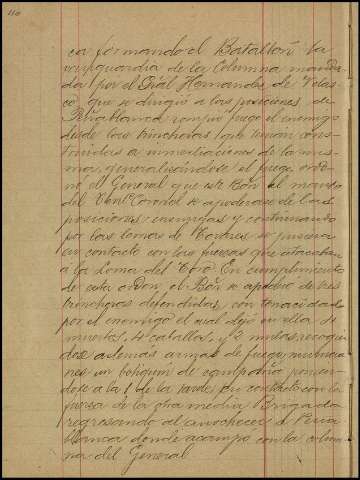 ca formando el Batallón la
vanguardia de la Columna manda-
da por el Gral Hernandez de Velas-
co que se dirigió a las posiciones de
Peñablanca rompio fuego el enemigo
desde las trincheras que tenian cons-
truidas a inmediaciones de la mis-
ma, generalisandose el fuego orde-
nó el General que este Bón al mando
del Tente Coronel se apoderase de las
posiciones enemigas y continuando
por las lomas de se pusiera
en contacto con las fuerzas que atacaban
a la Loma del Toro. En cumplimiento
de esta orden, el Bón se apodró de tres
trincheras defendidas con tenacidad
por el enemigo el cual dejó en ella 4
muertos, 4 caballos, y 2 mulos recogien-
dose ademas armas de fuego, municio-
nes un botiquin de campaña ponien-
dose a la 1 de la tarde en contacto con la
fuerza de la media Brigada
regresando al anochecer a Peña
blanca donde acampó con la colum-
na del General